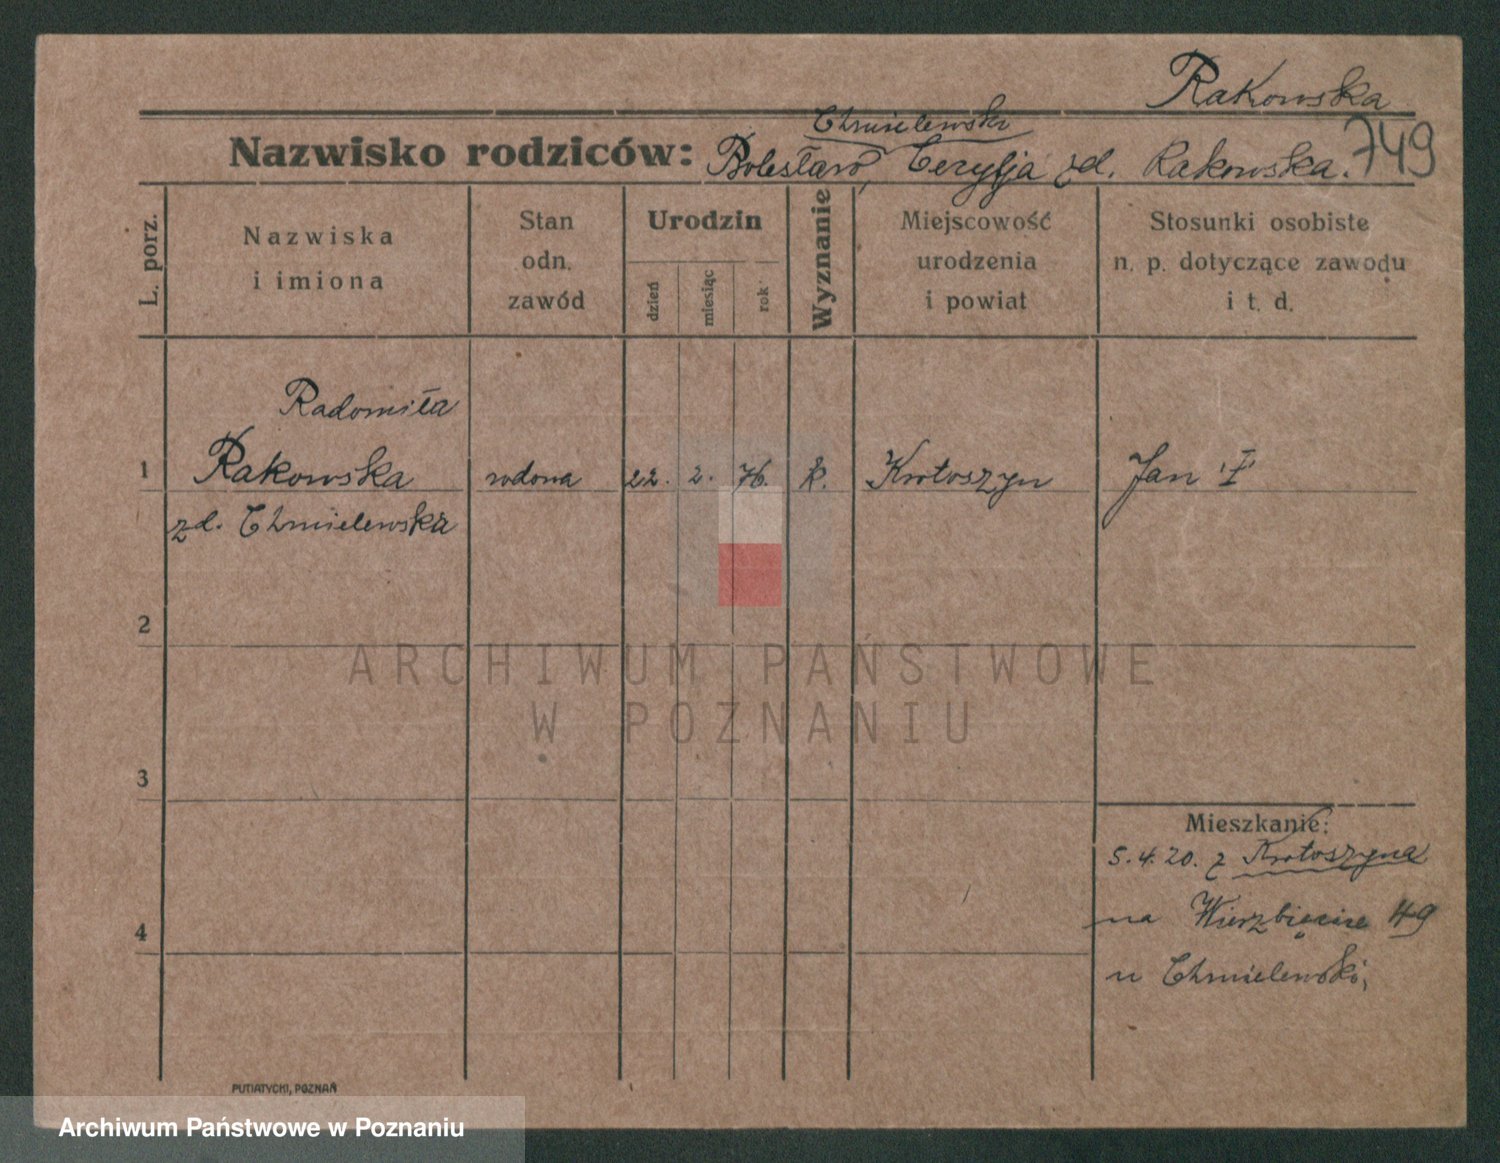 Rakowska
Chmielewski
749
Nazwisko rodziców: Bolesław, Cezylja zd. Rakowska.
L. porz.
Nazwiska
i imiona
Stan
odn.
zawód
Urodzin
dzień
miesiąc
rok
Wyznanie
Miejscowość
urodzenia
i powiat
Stosunki osobiste
n. p. dotyczące zawodu
i t. d.
Radomiła
1 Rakowska wdowa 22. 2. 76. k. Krotoszyn Jan
zd. Chmielewska
2
ARCHIWUM PAŃSTWOWE
W POZNANIU
3
Mieszkanie:
5.4.20. z Krotoszyna
na Wierzbięcice 49
4
u Chmielewski,
PUTIATYCKI, POZNAŃ
Archiwum Państwowe w Poznaniu